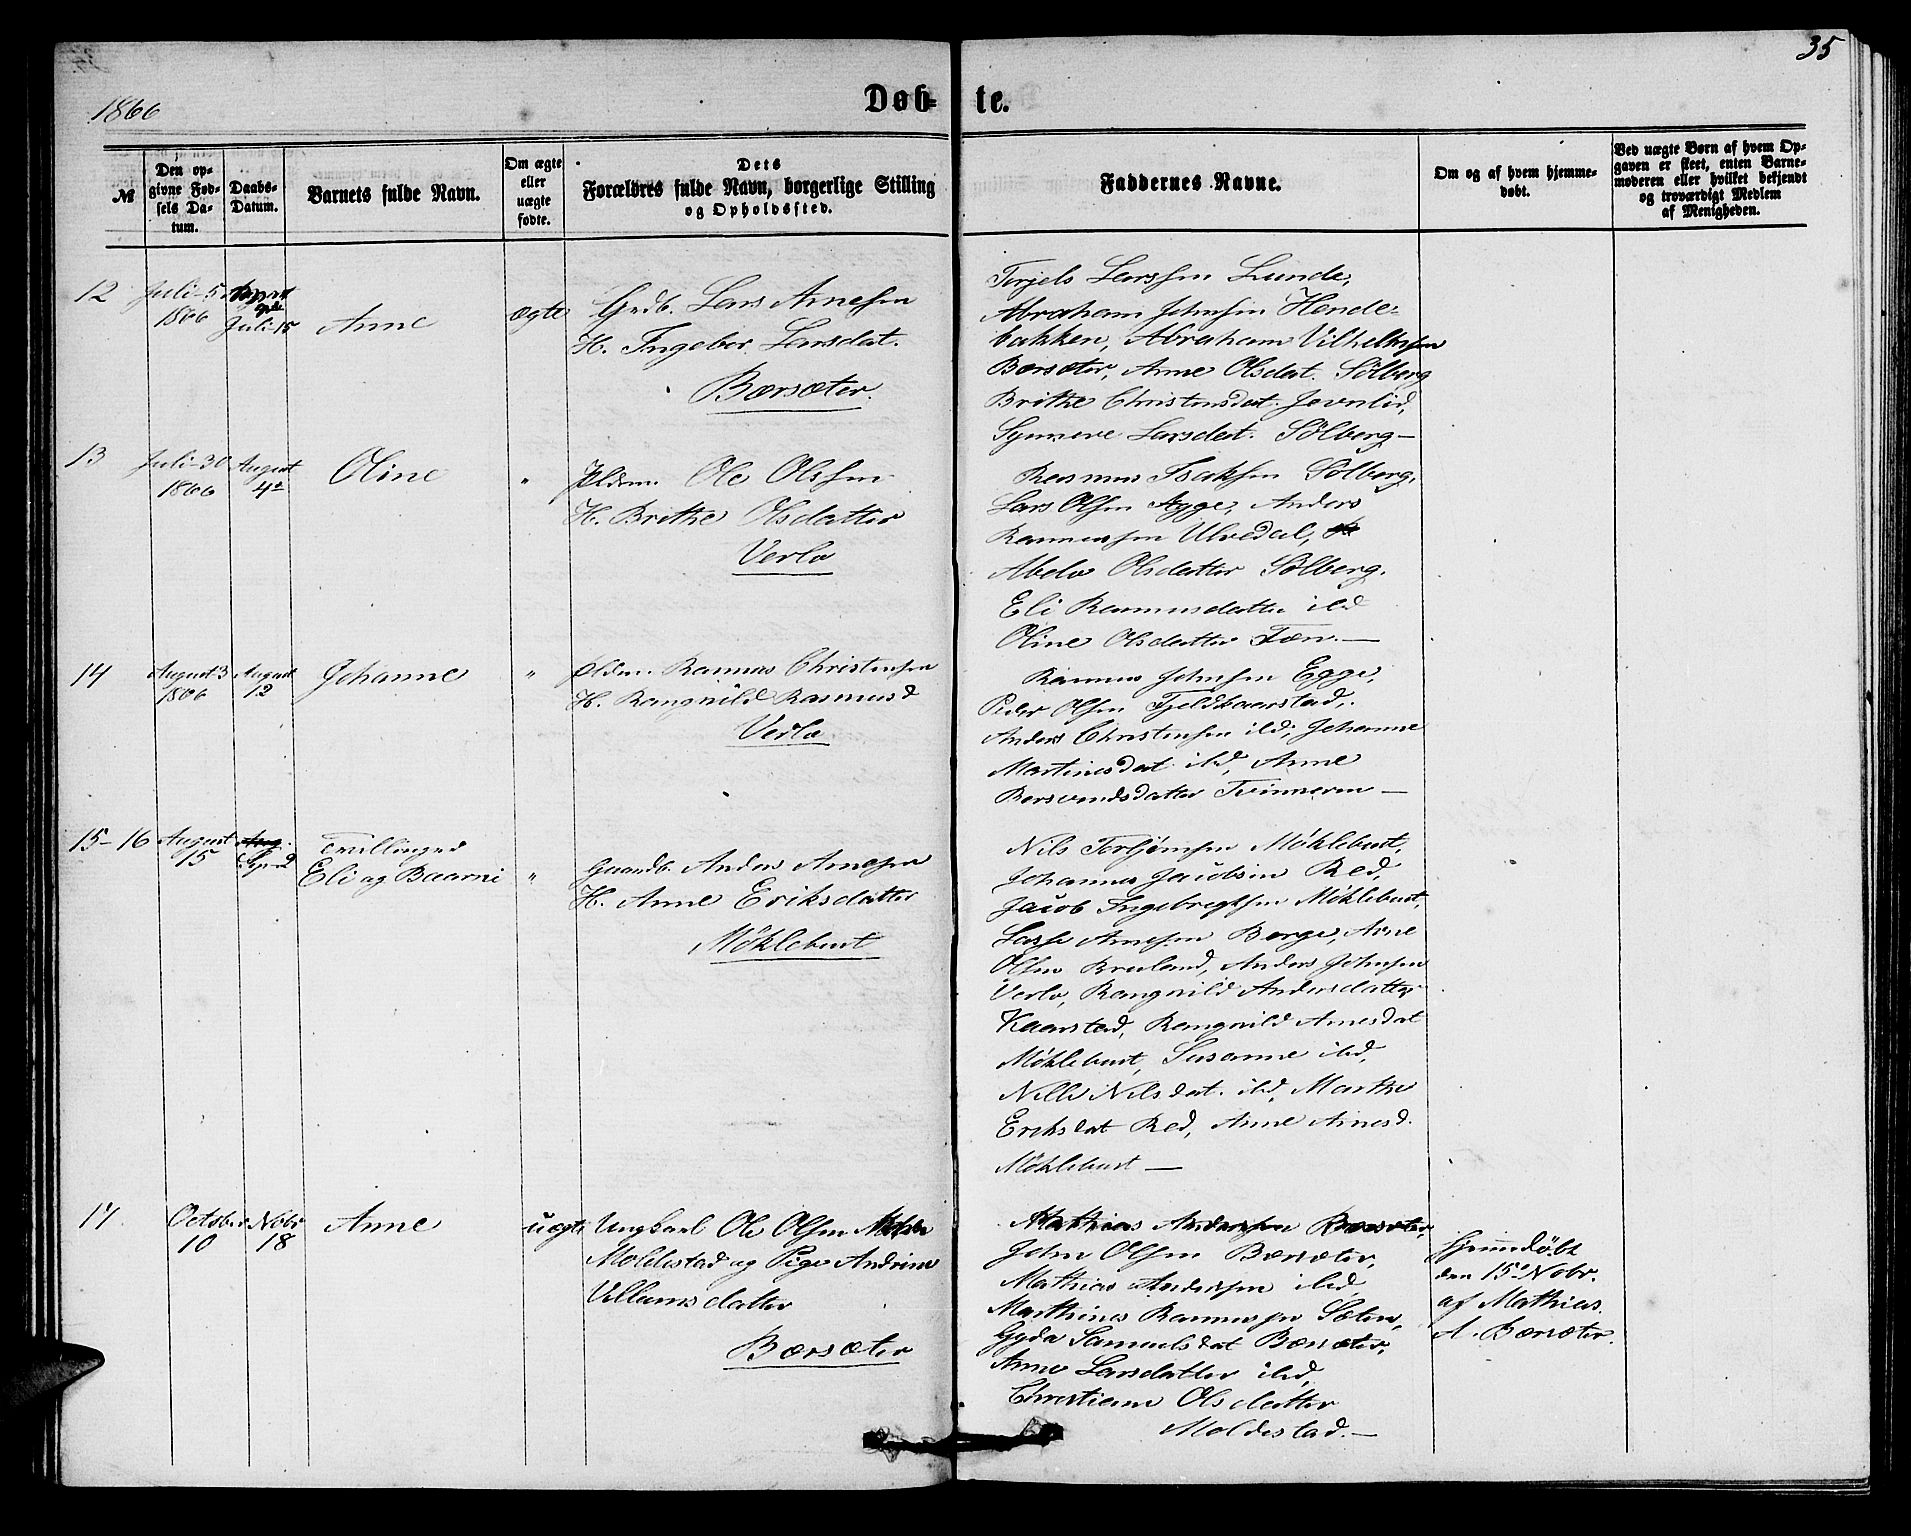 35
1866
Døb- te.
№
Den op-
givne Fød-
sels Da-
tum.
Daabs-
Datum.
Barnets fulde Navn.
Om ægte
eller
uægte
fødte.
Dets
Forældres fulde Navn, borgerlige Stilling
og Opholdssted.
Faddernes Navne.
Om og af hvem hjemme-
døbt.
Ved uægte Børn af hvem Op-
gaven er skeet, enten Barne-
moderen eller hvilket bekjendt
og troværdigt Medlem
af Menigheden.
12
Juli 5
1866
Juli 15
Anne
ægte
Grdb. Lars Arnesen
H. Ingebor Larsdat.
Børsæter.
Terjels Larssen Lunde,
Abraham Johnsen Hende-
bakken, Abraham Vilhelmsen
Børsæter, Anne Olsdat. Sölberg
Brithe Christensdat. Jevnlid,
Synneve Larsdat. Sölberg—
13
Juli 30
1866
August
4de
Oline
"
Pldsm. Ole Olssen
H. Brithe Olsdatter
Verlo
Rasmus Isaksen Sölberg,
Lars Olsen Aygge, Anders
Rasmussen Ulvedal,
Abelo Olsdatter Sölberg.
Eli Rasmusdatter ibd
Oline Olsdatter Tæn.—
14
August 3
1866
August
12
Johanne
"
Pldsm. Rasmus Christensen
H. Rangnild Rasmusd
Verlo
Rasmus Johnsen Egge,
Peder Olsen Fjeldkaarstad,
Anders Christensen ibd, Johanne
Martinesdat ibd, Anne
Bersvendsdatter Tvinneren—
15-16
August
15
Tvillinger
Eli og Baarni
"
Gaardb. Anders Arnesen
H. Anne Eriksdatter
Møklebust
Nils Torbjørnsen Møklebust,
Johannes Jacobsen Red,
Jacob Ingebregtsen Møklebust,
Lasse Arnesen Berge, Arne
Olsen Bruland, Anders Johnsen
Verlo, Rangnild Andersdatter
Kaarstad, Rangnild Arnesdat
Møklebust, Susanne ibd,
Nille Nilsdat. ibd, Marthe
Eriksdat Red, Anne Arnesd.
Møklebust—
17
October
10
Nobr
18
Anne
uægte
Ungkarl Ole Olsen
Moldestad og Pige Andrine
Villumsdatter
Børsæter
Mathias Andersen Børsæter,
John Olsen Børsæter,
Mathias Andersen ibd,
Marthines Rasmussen Sæten,
Gyda Samuelsdat Børsæter,
Anne Larsdatter ibd,
Christiane Olsdatter
Moldestad.—
Hjemmedøbt
den 15de Nobr.
af Mathias
A. Børsæter.